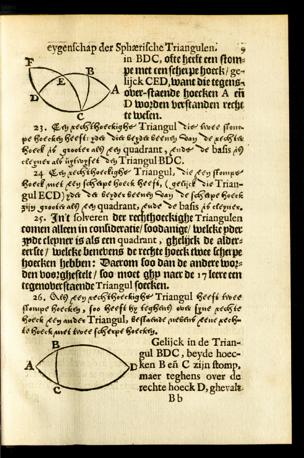 eygenschap der Sphærische Triangulen. 9
F
E
B
D
A
C
in BDC, ofte heeft een stom-
pe met een scherpe hoeck/ ge-
lijck CED, want die tegens-
over-staende hoecken A eñ
D worden verstanden recht
te wesen.
23. Een rechthoeckighe Triangul die twee stom-
pe hoecken heeft: zijn die beyde beenen van de rechte
hoeck zijn grooter als een quadrant, ende de basis is
cleyner als uytwijst den Triangul BDC.
24. Een rechthoeckighe Triangul, die een stompe
hoeck met een scherpe hoeck heeft, (gelijck die Trian-
gul ECD) zijn der beyder beenen van de scherpe hoeck
zijn grooter als een quadrant, ende de basis is cleyner,
25. In't solveren der rechthoeckighe Triangulen
comen alleen in consideratie/ soodanige/ welcke yder
zyde cleyner is als een quadrant, ghelijck de alder-
eerste/ welcke benevens de rechte hoeck twee scherpe
hoecken hebben: Daerom soo dan de ander wor-
den voorghestelt/ soo moet ghy naer de 17 leere een
tegenoverstaende Triangul soecken.
26. Als een rechthoeckighe Triangul heeft twee
stompe hoecken, soo heeft hy teghens over syne rechte
hoeck een ander Triangul, bestaende nevens eene rech-
te hoeck met twee scherpe hoecken.
B
A
D
C
Gelijck in de Trian-
gul BDC, beyde hoec-
ken B eñ C zijn stomp,
maer teghens over de
rechte hoeck D, ghevalt
B b